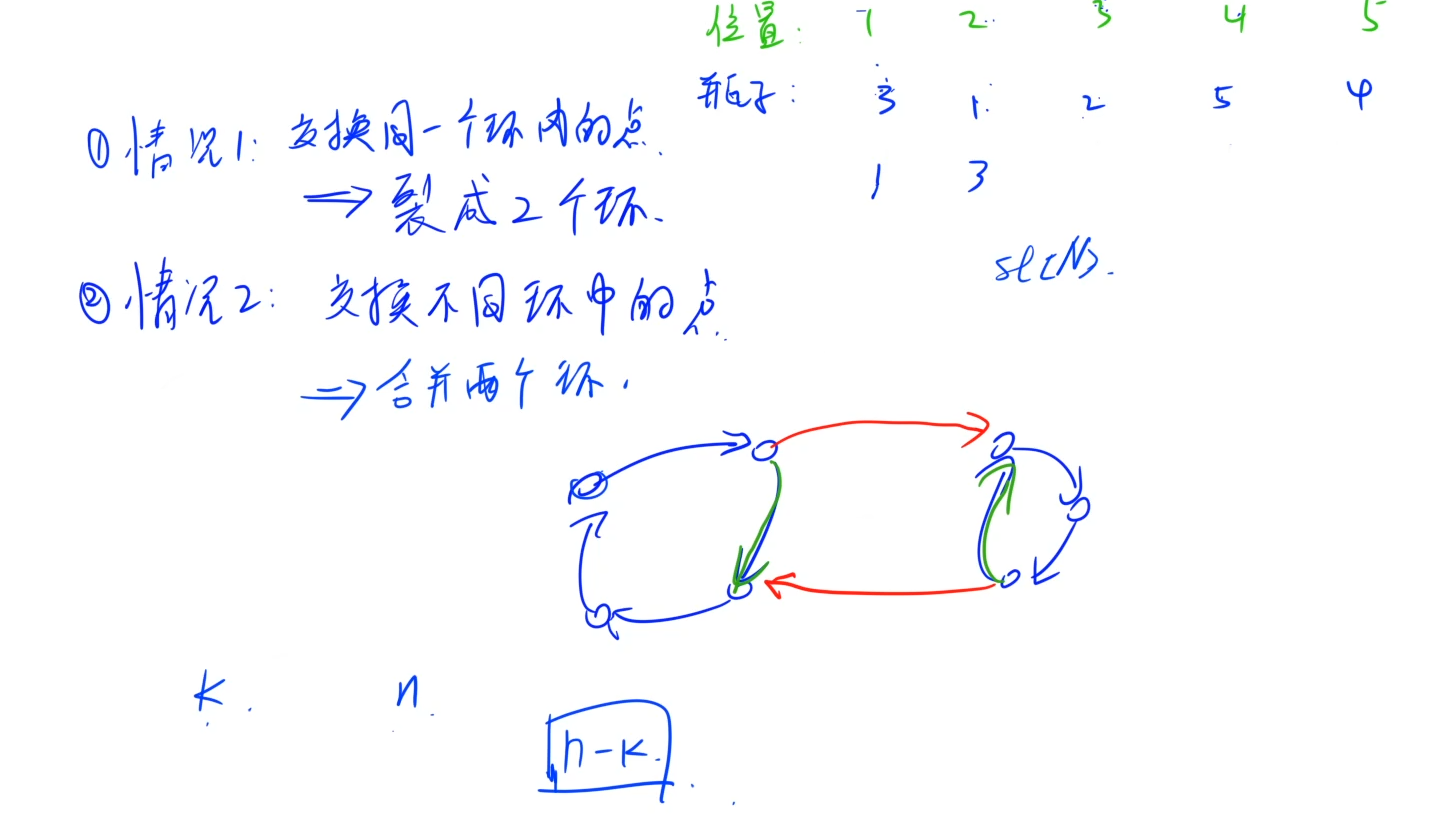 位置: 1 2 3 4 5
瓶子: 3 1 2 5 4
1 3
① 情况1: 交换同一个环内的点.
⇒ 裂成2个环.
st[N].
② 情况2: 交换不同环中的点.
⇒ 合并两个环.
k. n.
n-k.